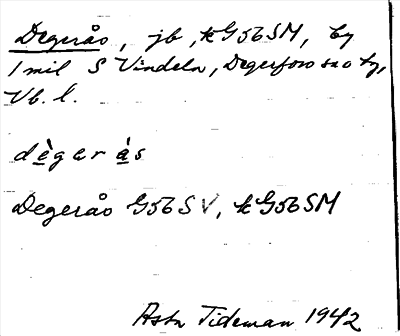 Degerås, jb, kG56SM, by
1 mil S Vindeln, Degerfors sn o tg,
Vb. l.
dègerås
Degerås G56SV, kG56SM
Asta Tideman 1942